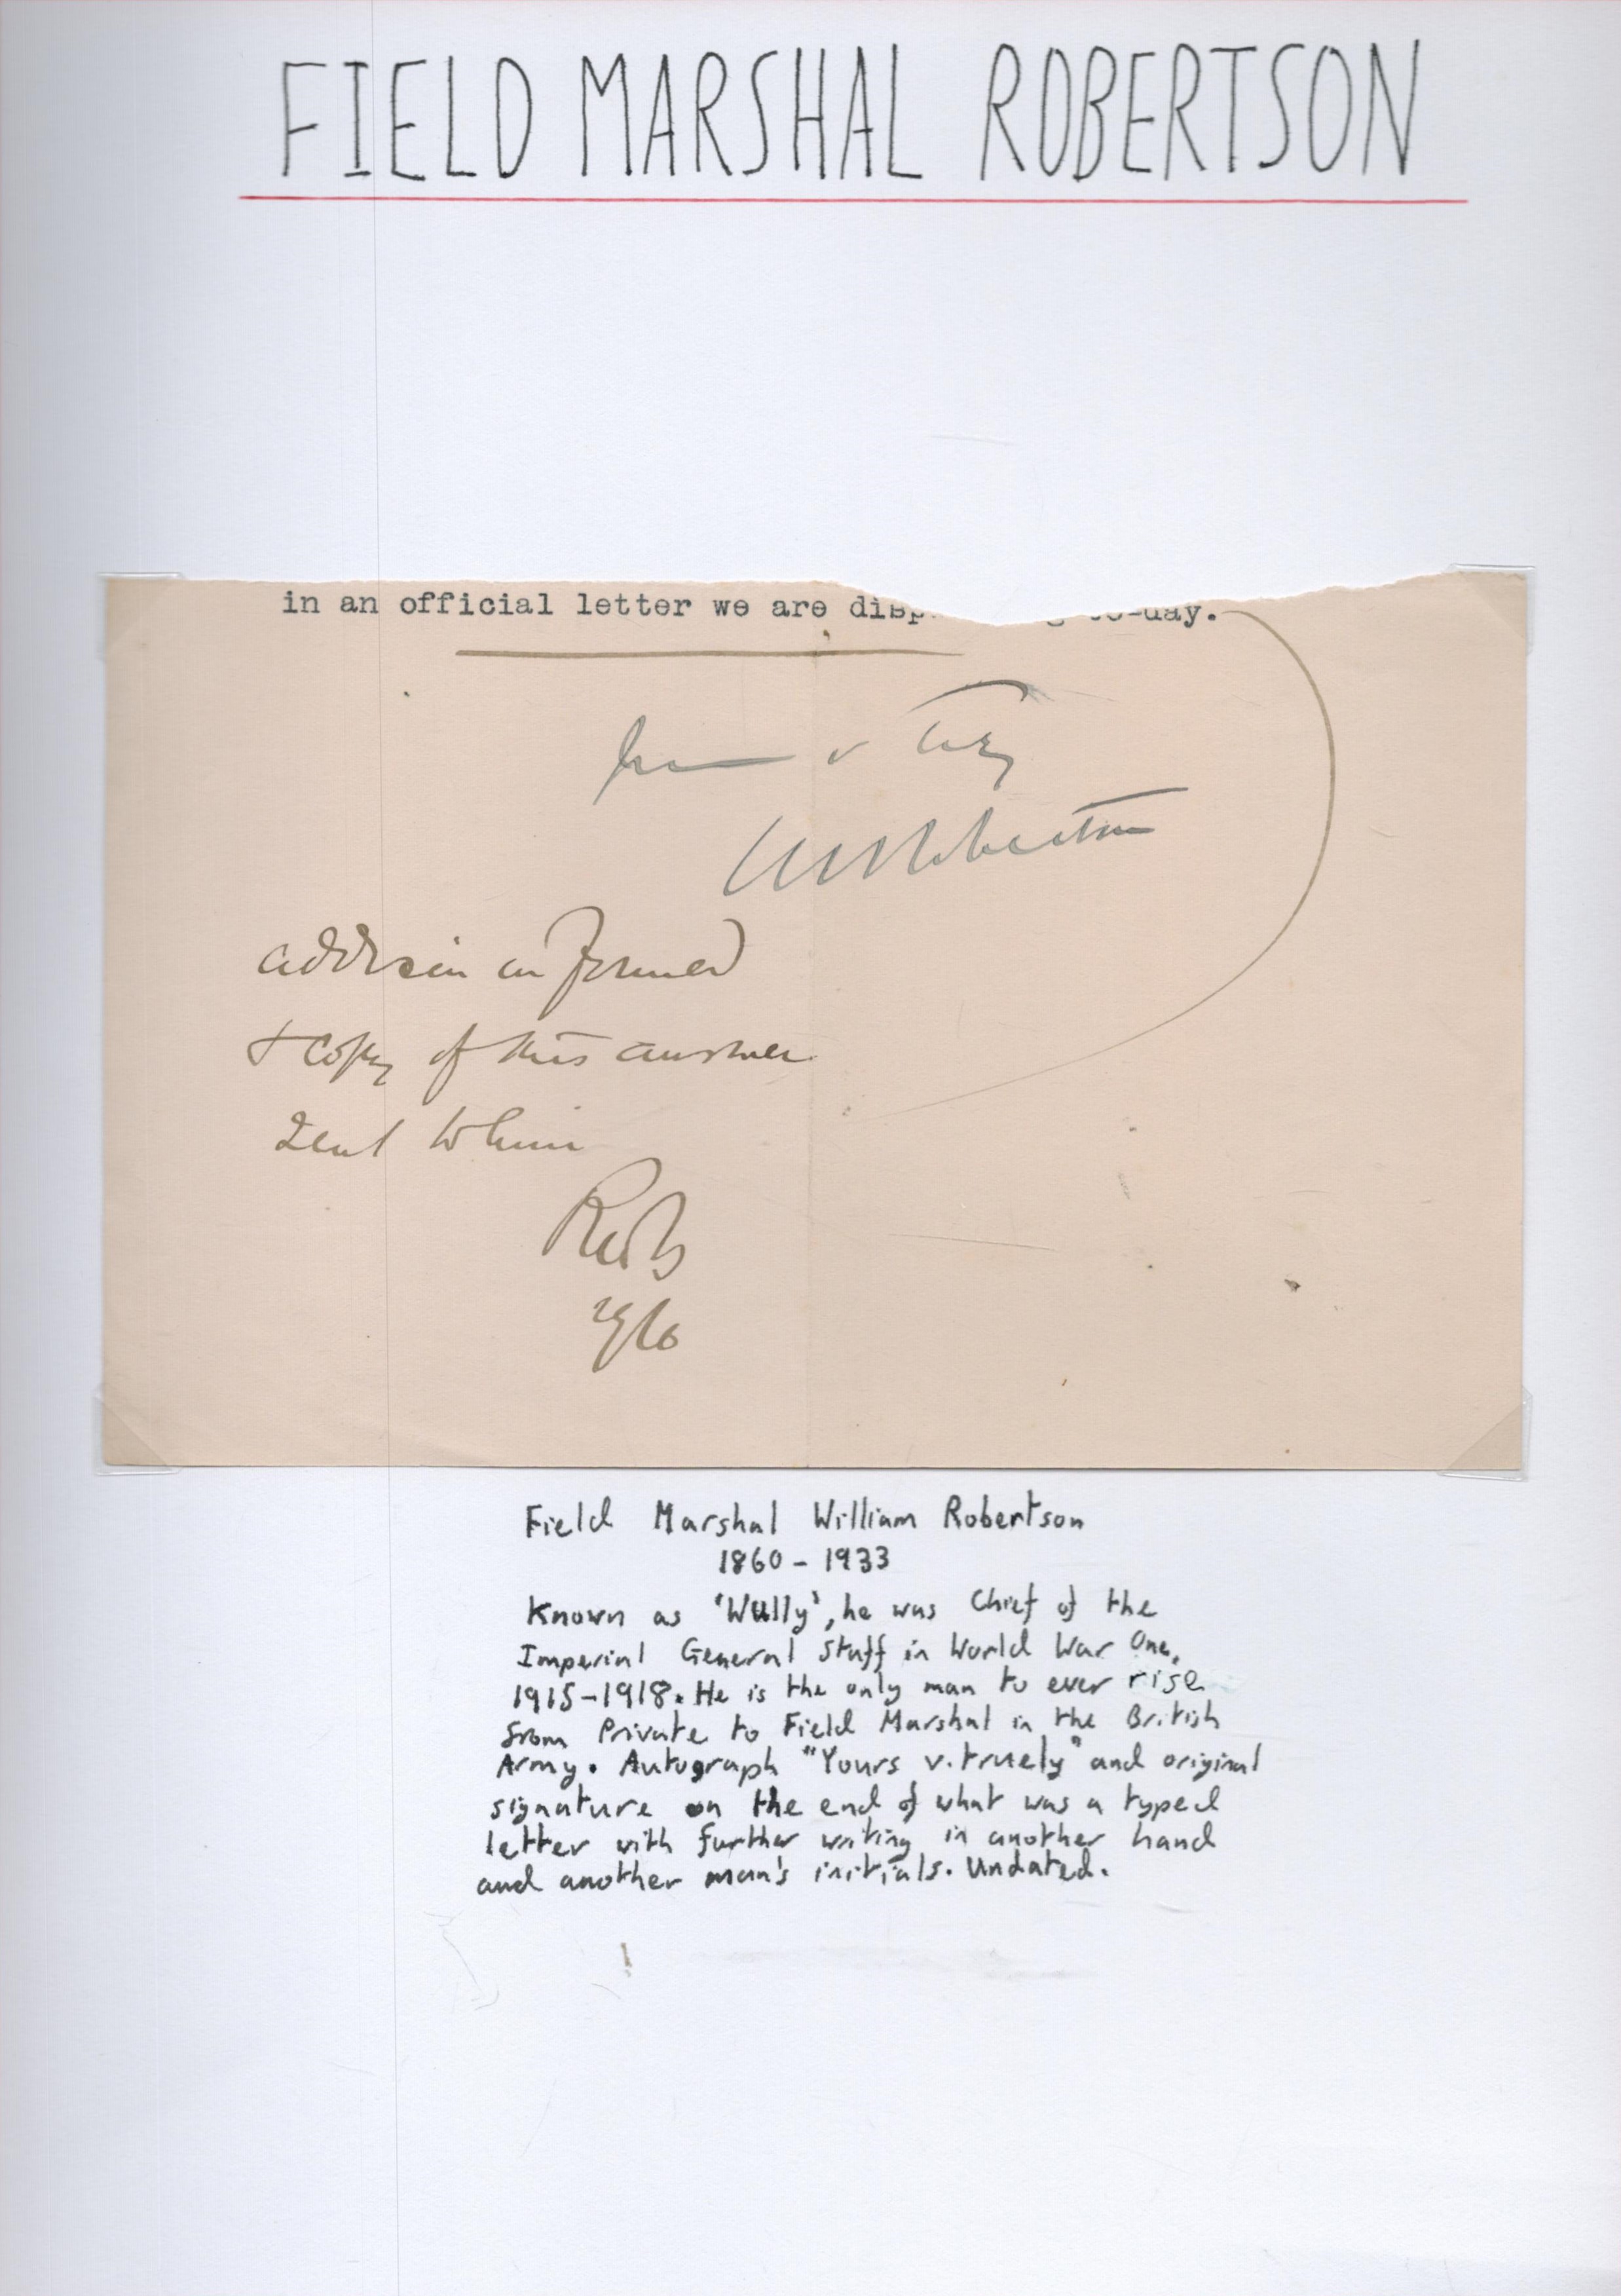 FIELD MARSHAL ROBERTSON
in an official letter we are disp to-day.
v
WRRobertson
informed
+ copy of this answer
sent to him
Field Marshal William Robertson
1860 - 1933
Known as 'Wully', he was Chief of the
Imperial General Staff in World War One,
1915-1918. He is the only man to ever rise
from Private to Field Marshal in the British
Army. Autograph "Yours v. truely" and original
signature on the end of what was a typed
letter with further writing in another hand
and another man's initials. Undated.